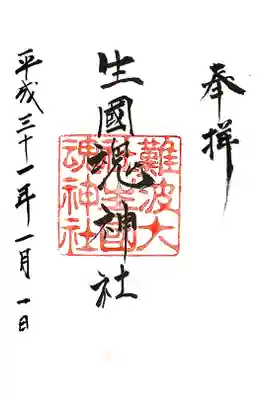 奉拝
生國魂神社
難波大社生國魂神社
平成三十一年一月一日